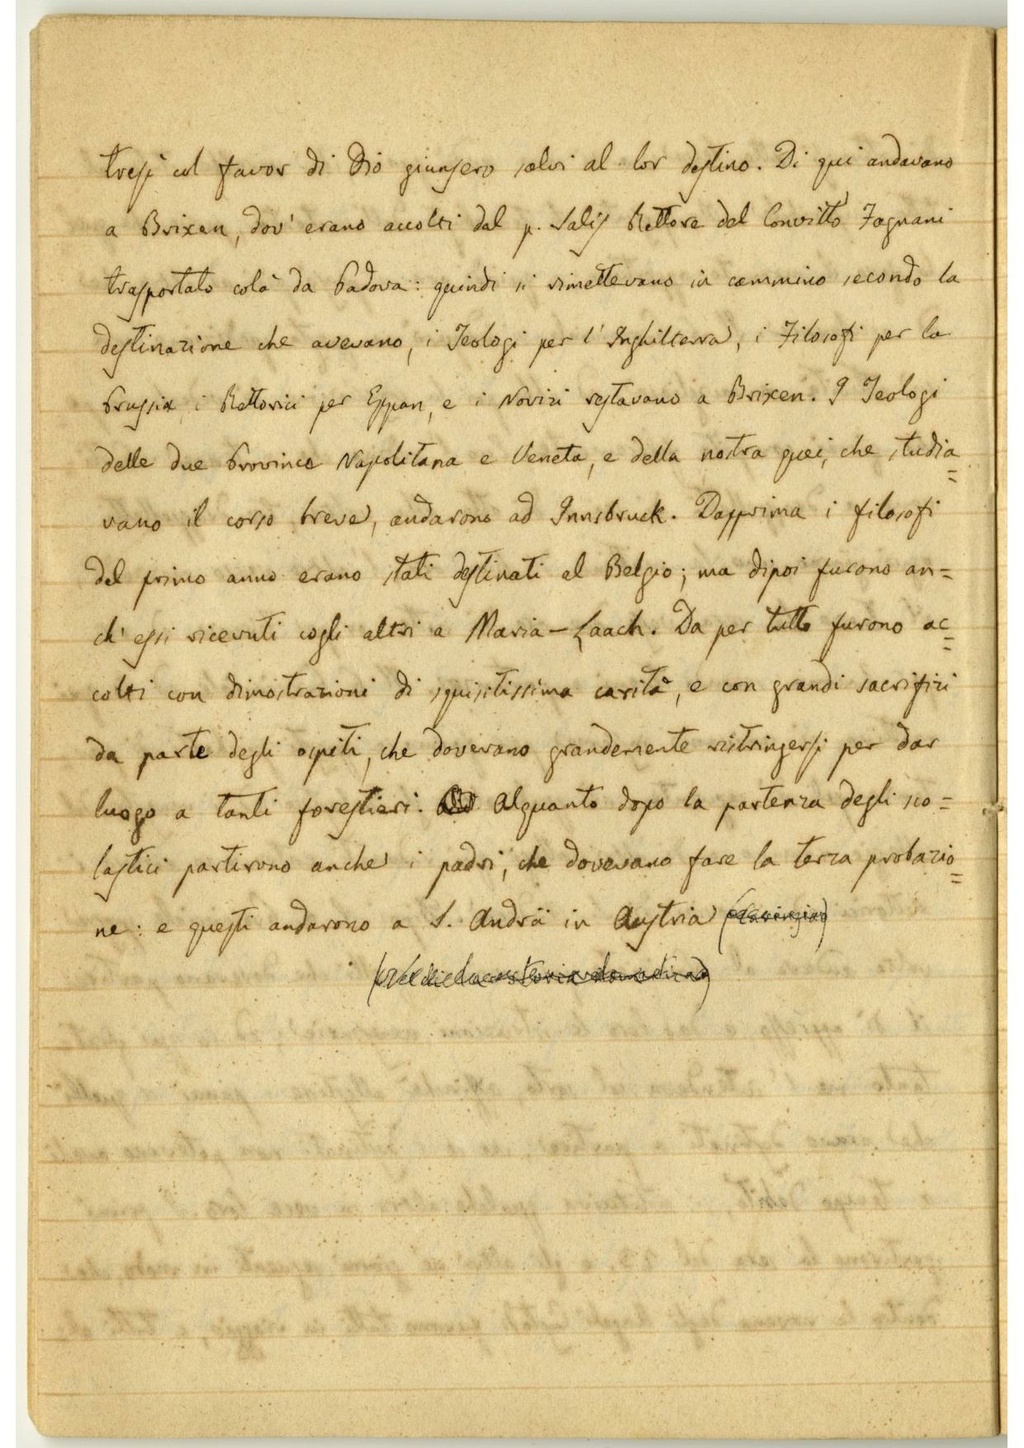 tresi col favor di Dio giunsero salvi al lor destino. Di qui andavano
a Brixen, dov' erano accolti dal p. Salis Rettore del Convitto Fagnani
trasportato colà da Padova: quindi si rimettevano in cammino secondo la
destinazione che avevano, i Teologi per l' Inghilterra, i Filosofi per la
Prussia i Rettorici per Eppan, e i Novizi restavano a Brixen. I Teologi
delle due Provincie Napolitana e Veneta, e della nostra quei, che studia=
vano il corso breve, andarono ad Innsbruck. Dapprima i filosofi
del primo anno erano stati destinati al Belgio; ma dipoi furono an=
ch' essi ricevuti cogli altri a Maria-Laach. Da per tutto furono ac=
colti con dimostrazioni di squisitissima carità, e con grandi sacrifizi
da parte degli ospiti, che dovevano grandemente ristringersi per dar
luogo a tanti forestieri. Alquanto dopo la partenza degli sco=
lastici partirono anche i padri, che dovevano fare la terza probazio=
ne: e questi andarono a S. Andrä in Austria